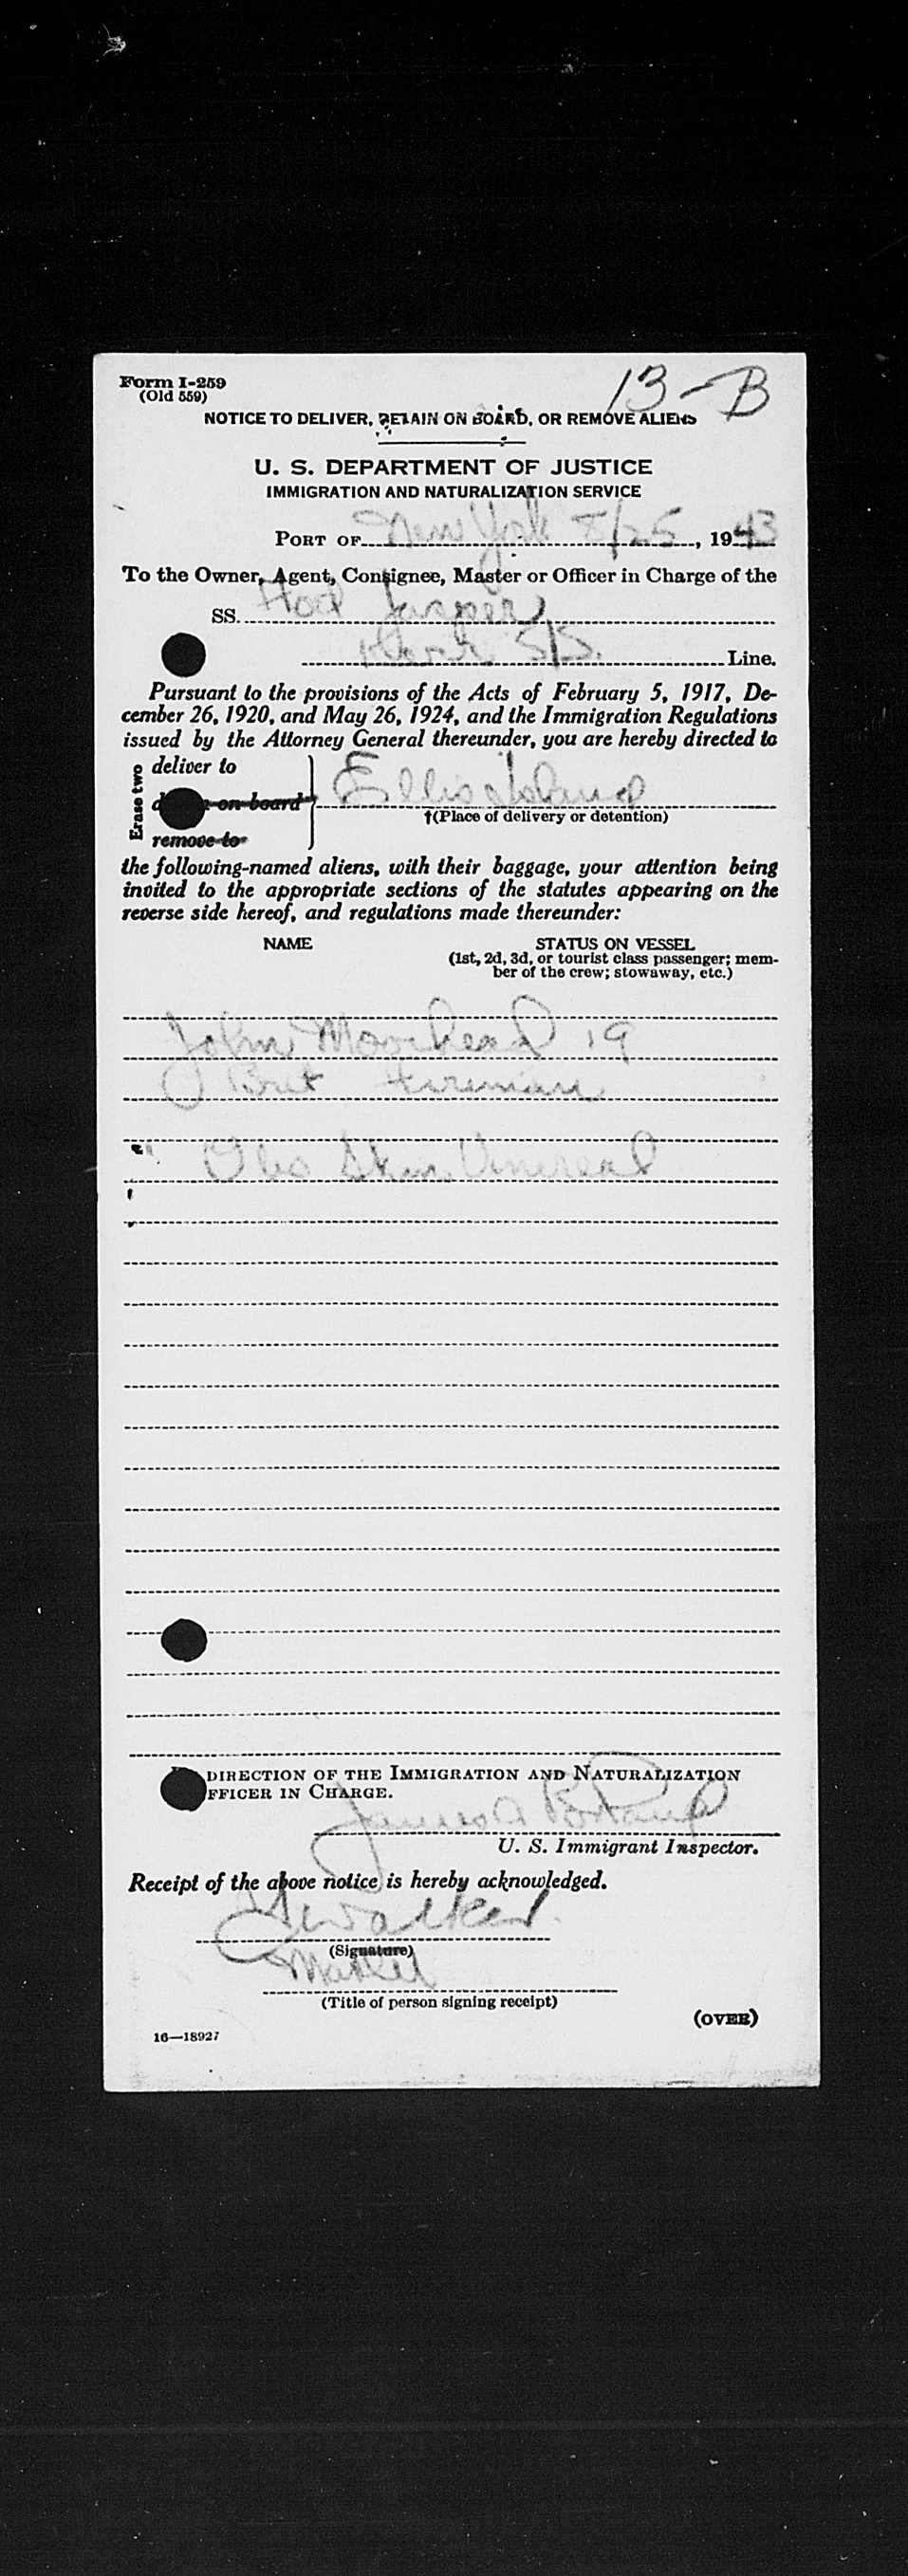 Form I-259
(Old 559)
13-B
NOTICE TO DELIVER, RETAIN ON BOARD, OR REMOVE ALIENS
U. S. DEPARTMENT OF JUSTICE
IMMIGRATION AND NATURALIZATION SERVICE
PORT OF New York 8/25, 1943
To the Owner, Agent, Consignee, Master or Officer in Charge of the
SS. Jasper
S/S. Line.
Pursuant to the provisions of the Acts of February 5, 1917, De-
cember 26, 1920, and May 26, 1924, and the Immigration Regulations
issued by the Attorney General thereunder, you are hereby directed to
Erase two
deliver to
on board
remove to
Ellis Island
†(Place of delivery or detention)
the following-named aliens, with their baggage, your attention being
invited to the appropriate sections of the statutes appearing on the
reverse side hereof, and regulations made thereunder:
NAME STATUS ON VESSEL
(1st, 2d, 3d, or tourist class passenger; mem-
ber of the crew; stowaway, etc.)
John Moorhead 19
Brit Fireman
Obs Skin Venereal
DIRECTION OF THE IMMIGRATION AND NATURALIZATION
FFICER IN CHARGE.
James
U. S. Immigrant Inspector.
Receipt of the above notice is hereby acknowledged.
Walker
(Signature)
Master
(Title of person signing receipt)
(OVER)
16—18927